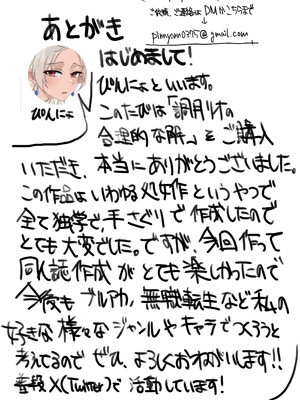 ご依頼、ご連絡はDMかこちらまで
pinnyon0395@gmail.com
あとがき
はじめまして！
ぴんにょといいます。
ぴんにょ
このたびは「調月リオの
合理的な解。」をご購入
いただき、本当にありがとうございました。
この作品はいわゆる処女作というやつで
全て独学で、手さぐりで作成したので
とても大変でした。ですが、今回作って
同人誌作成がとても楽しかったので
今後もブルアカ、無職転生など私の
好きな様々なジャンルやキャラでつくろうと
考えてるのでぜひ、よろしくおねがいします!!
普段X(Twitter)で活動しています!